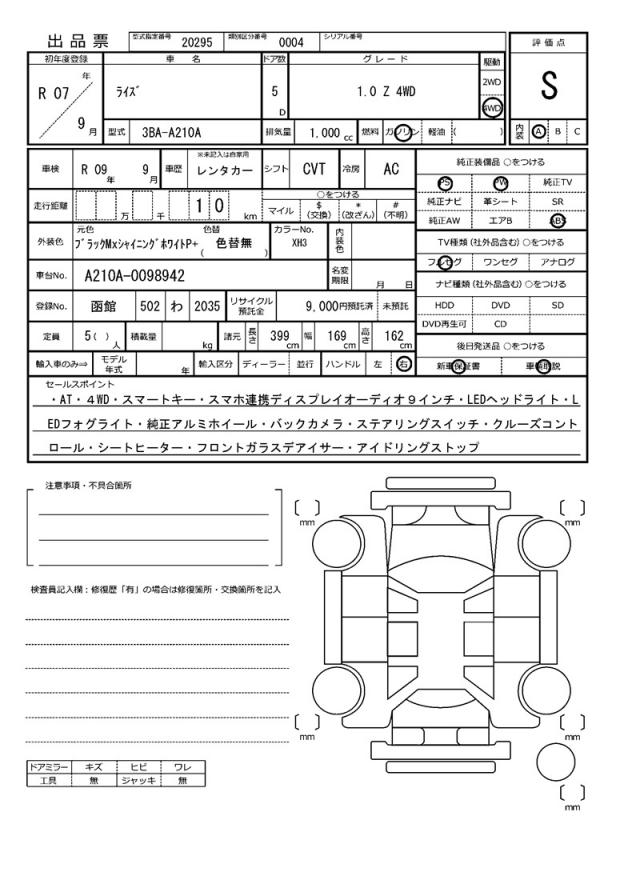 出品票 型式指定番号 20295 類別区分番号 0004 シリアル番号
評価点
S
初年度登録 車名 ドア数 グレード 駆動
R 07 年 9 月 ﾗｲｽﾞ 5 D 1.0 Z 4WD 2WD 4WD
型式 3BA-A210A 排気量 1.000 cc 燃料 ガソリン 軽油 ( ) 内装 A B C
車検 R 09 年 9 月 車歴 ※未記入は自家用 レンタカー シフト CVT 冷房 AC
走行距離 万 千 1 0 km ○をつける マイル $ (交換) * (改ざん) # (不明)
外装色 元色 ﾌﾞﾗｯｸMxｼｬｲﾆﾝｸﾞﾎﾜｲﾄP+ 色替 ( 色替無 ) カラーNo. XH3 内装色
車台No. A210A-0098942 名変期限 月 日
登録No. 函館 502 わ 2035 リサイクル預託金 9,000円預託済 未預託
定員 5( ) 人 積載量 kg 諸元 長さ 399 cm 幅 169 cm 高さ 162 cm
輸入車のみ⇒ モデル年式 年 輸入区分 ディーラー 並行 ハンドル 左 右
純正装備品 ○をつける
PS PW 純正TV
純正ナビ 革シート SR
純正AW エアB ABS
TV種類 (社外品含む) ○をつける
フルセグ ワンセグ アナログ
ナビ種類 (社外品含む) ○をつける
HDD DVD SD
DVD再生可 CD
後日発送品 ○をつける
新車保証書 車輌取説
セールスポイント
・AT・4WD・スマートキー・スマホ連携ディスプレイオーディオ9インチ・LEDヘッドライト・L
EDフォグライト・純正アルミホイール・バックカメラ・ステアリングスイッチ・クルーズコント
ロール・シートヒーター・フロントガラスデアイサー・アイドリングストップ
注意事項・不具合箇所
検査員記入欄：修復歴「有」の場合は修復箇所・交換箇所を記入
ドアミラー キズ ヒビ ワレ
工具 無 ジャッキ 無
mm
mm
mm
mm
mm